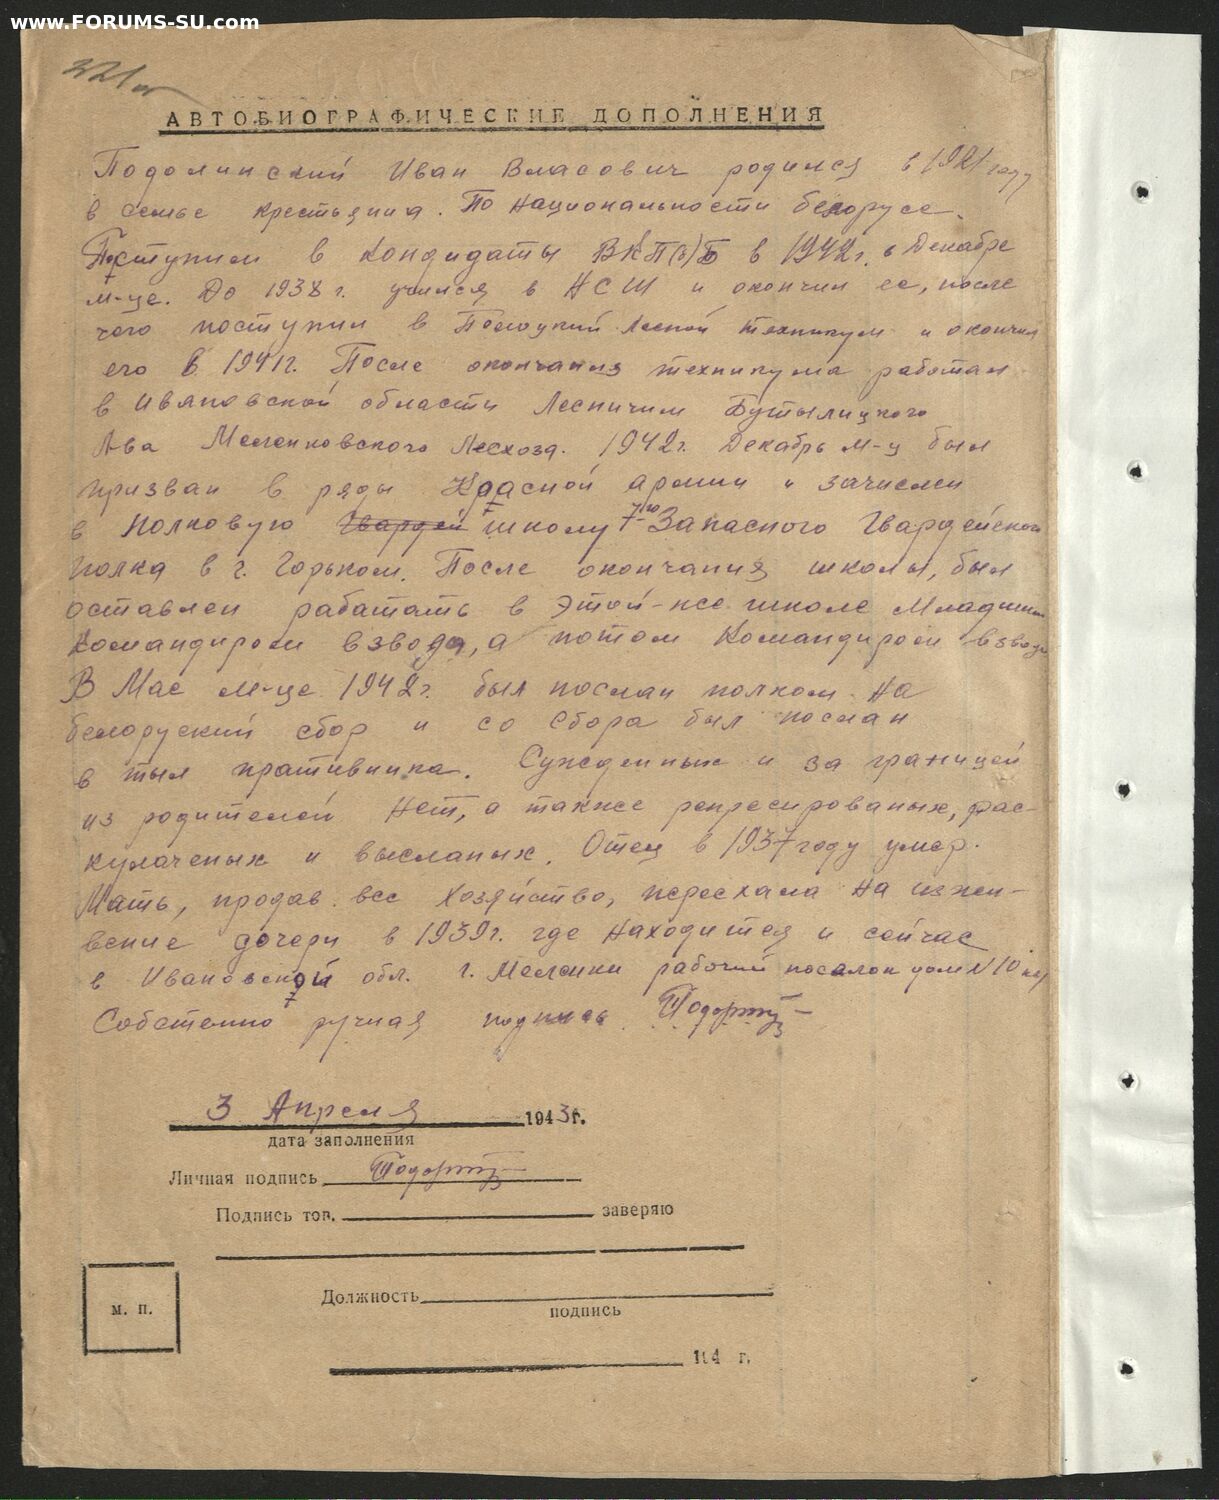 www.FORUMS-SU.com
АВТОБИОГРАФИЧЕСКИЕ ДОПОЛНЕНИЯ
Иван Власович родился в 1921 году
в семье крестьянина. По национальности белорус
Поступил в Кондидаты ВКП(б)Б в 1942г. в Декабре
м-це. До 1938 г. учился в НСШ и окончил ее, после
чего поступил в Полоцкий лесной техникум и окончил
его в 1941г. После окончания техникума работал
в Ивановской области Лесничим Бутылицкого
Л-ва Меленковского Лесхоза. 1942г. Декабрь м-ц был
призван в ряды Красной армии и зачислен
в полковую школу 7-го Запасного Гвардейского
полка в г. Горьком. После окончания школы, был
оставлен работать в этой-же школе Младшим
Командиром взвода, а потом Командиром взвода
В Мае м-це 1942г. был послан полком на
белоруский сбор и со сбора был послан
в тыл пративника. Сужденных и за границей
из родителей нет, а также репресированых, рас-
кулаченых и высланых. Отец в 1937 году умер.
Мать, продав все хозяйство, переехала на ижен-
вение дочери в 1939г. где находится и сейчас
в Ивановской обл. г. Меленки рабочий поселок дом N 10
Собственно ручная подпись
3 Апреля 1943г.
дата заполнения
Личная подпись
Подпись тов. заверяю
Должность
подпись
м. п.
194 г.